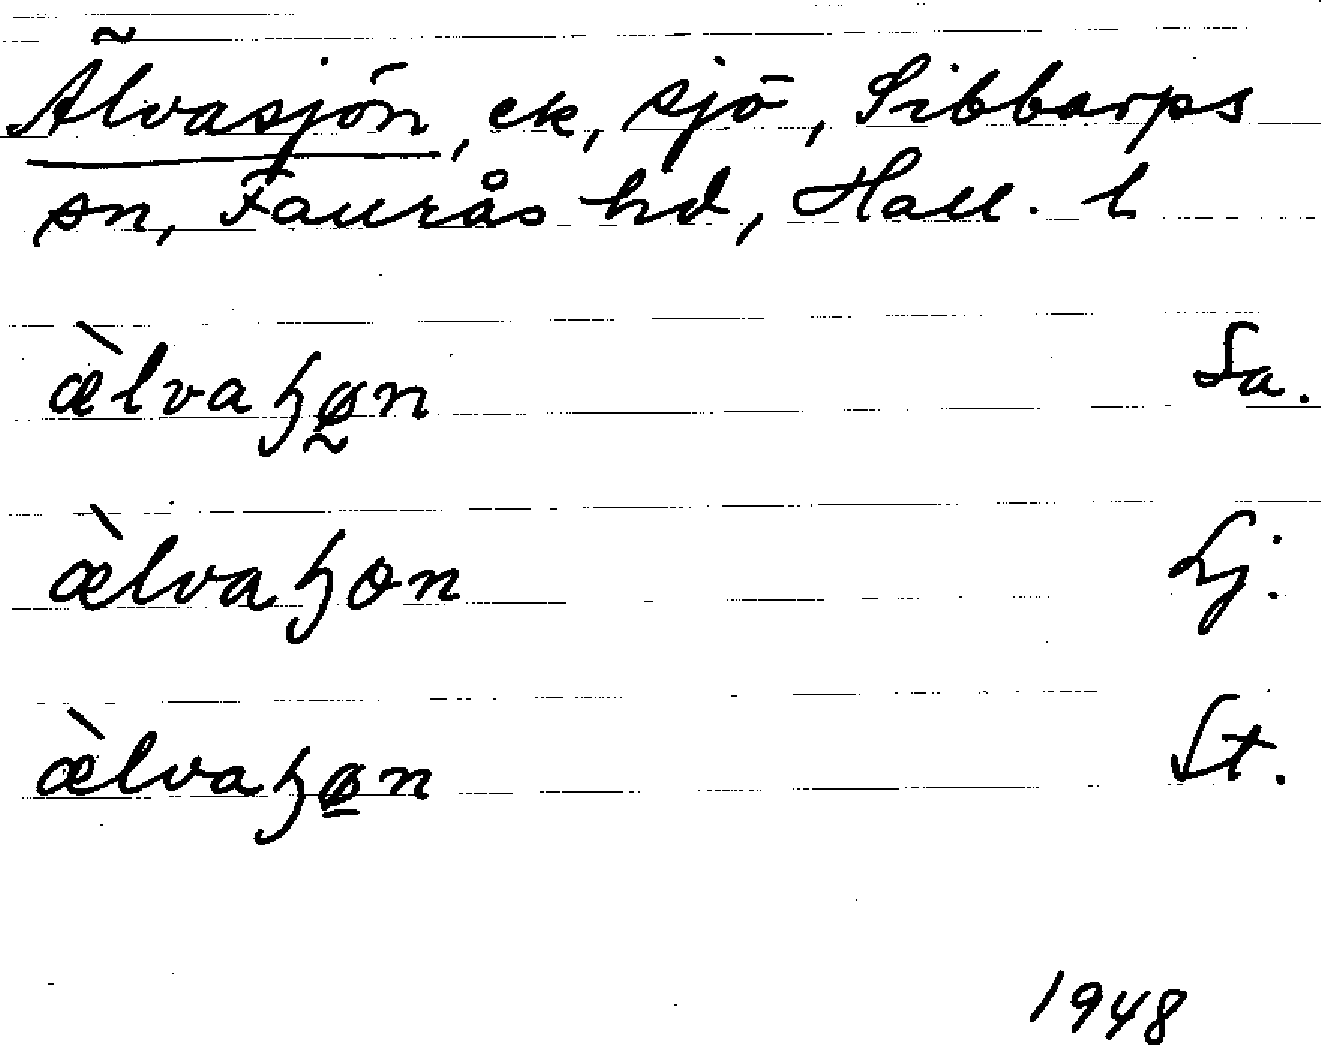 Älvasjön, ek, sjö, Sibbarps
sn, Faurås hd, Hall. l
æ̀lvaɧø̰n Sa.
æ̀lvaɧɵn Lj.
æ̀lvaɧø̲n St.
1948